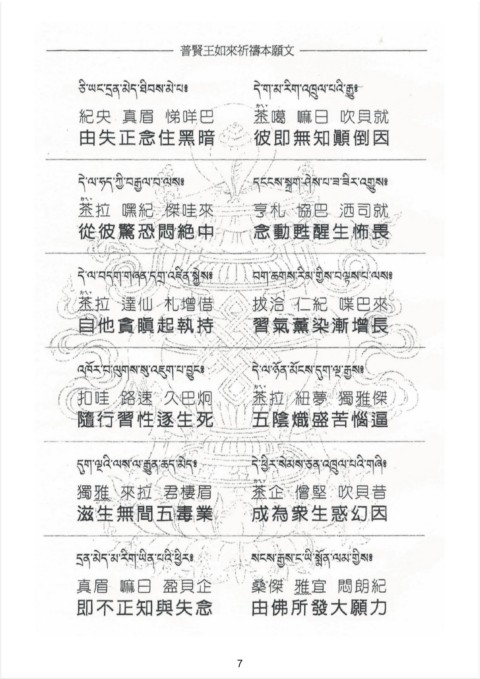 普賢王如來祈禱本願文
ཅི་ཡང་དྲན་མེད་ཐིབས་མེ་པ༔
紀央 真眉 悌咩巴
由失正念住黑暗
དེ་ག་མ་རིག་འཁྲུལ་པའི་རྒྱུ༔
荼噶 嘛日 吹貝就
彼即無知顚倒因
དེ་ལ་ཧད་ཀྱི་བརྒྱལ་བ་ལས༔
荼拉 嘿紀 傑哇來
從彼驚恐悶絕中
དངངས་སྐྲག་ཤེས་པ་ཟ་ཟིར་འགྱུས༔
亨札 協巴 洒司就
念動甦醒生怖畏
དེ་ལ་བདག་གཞན་དགྲ་འཛིན་སྐྱེས༔
荼拉 達仙 札增借
自他貪瞋起執持
བག་ཆགས་རིམ་གྱིས་བལྟས་པ་ལས༔
拔洽 仁紀 喋巴來
習氣薰染漸增長
འཁོར་བ་ལུགས་སུ་འཇུག་པ་བྱུང༔
扣哇 路速 久巴炯
隨行習性逐生死
དེ་ལ་ཉོན་མོངས་དུག་ལྔ་རྒྱས༔
荼拉 紐夢 獨雅傑
五陰熾盛苦惱逼
དུག་ལྔའི་ལས་ལ་རྒྱུན་ཆད་མེད༔
獨雅 來拉 君棲眉
滋生無間五毒業
དེ་ཕྱིར་སེམས་ཅན་འཁྲུལ་པའི་གཞི༔
荼企 僧堅 吹貝昔
成為衆生惑幻因
དྲན་མེད་མ་རིག་ཡིན་པའི་ཕྱིར༔
真眉 嘛日 盈貝企
即不正知與失念
སངས་རྒྱས་ང་ཡི་སྨོན་ལམ་གྱིས༔
桑傑 雅宜 悶朗紀
由佛所發大願力
7